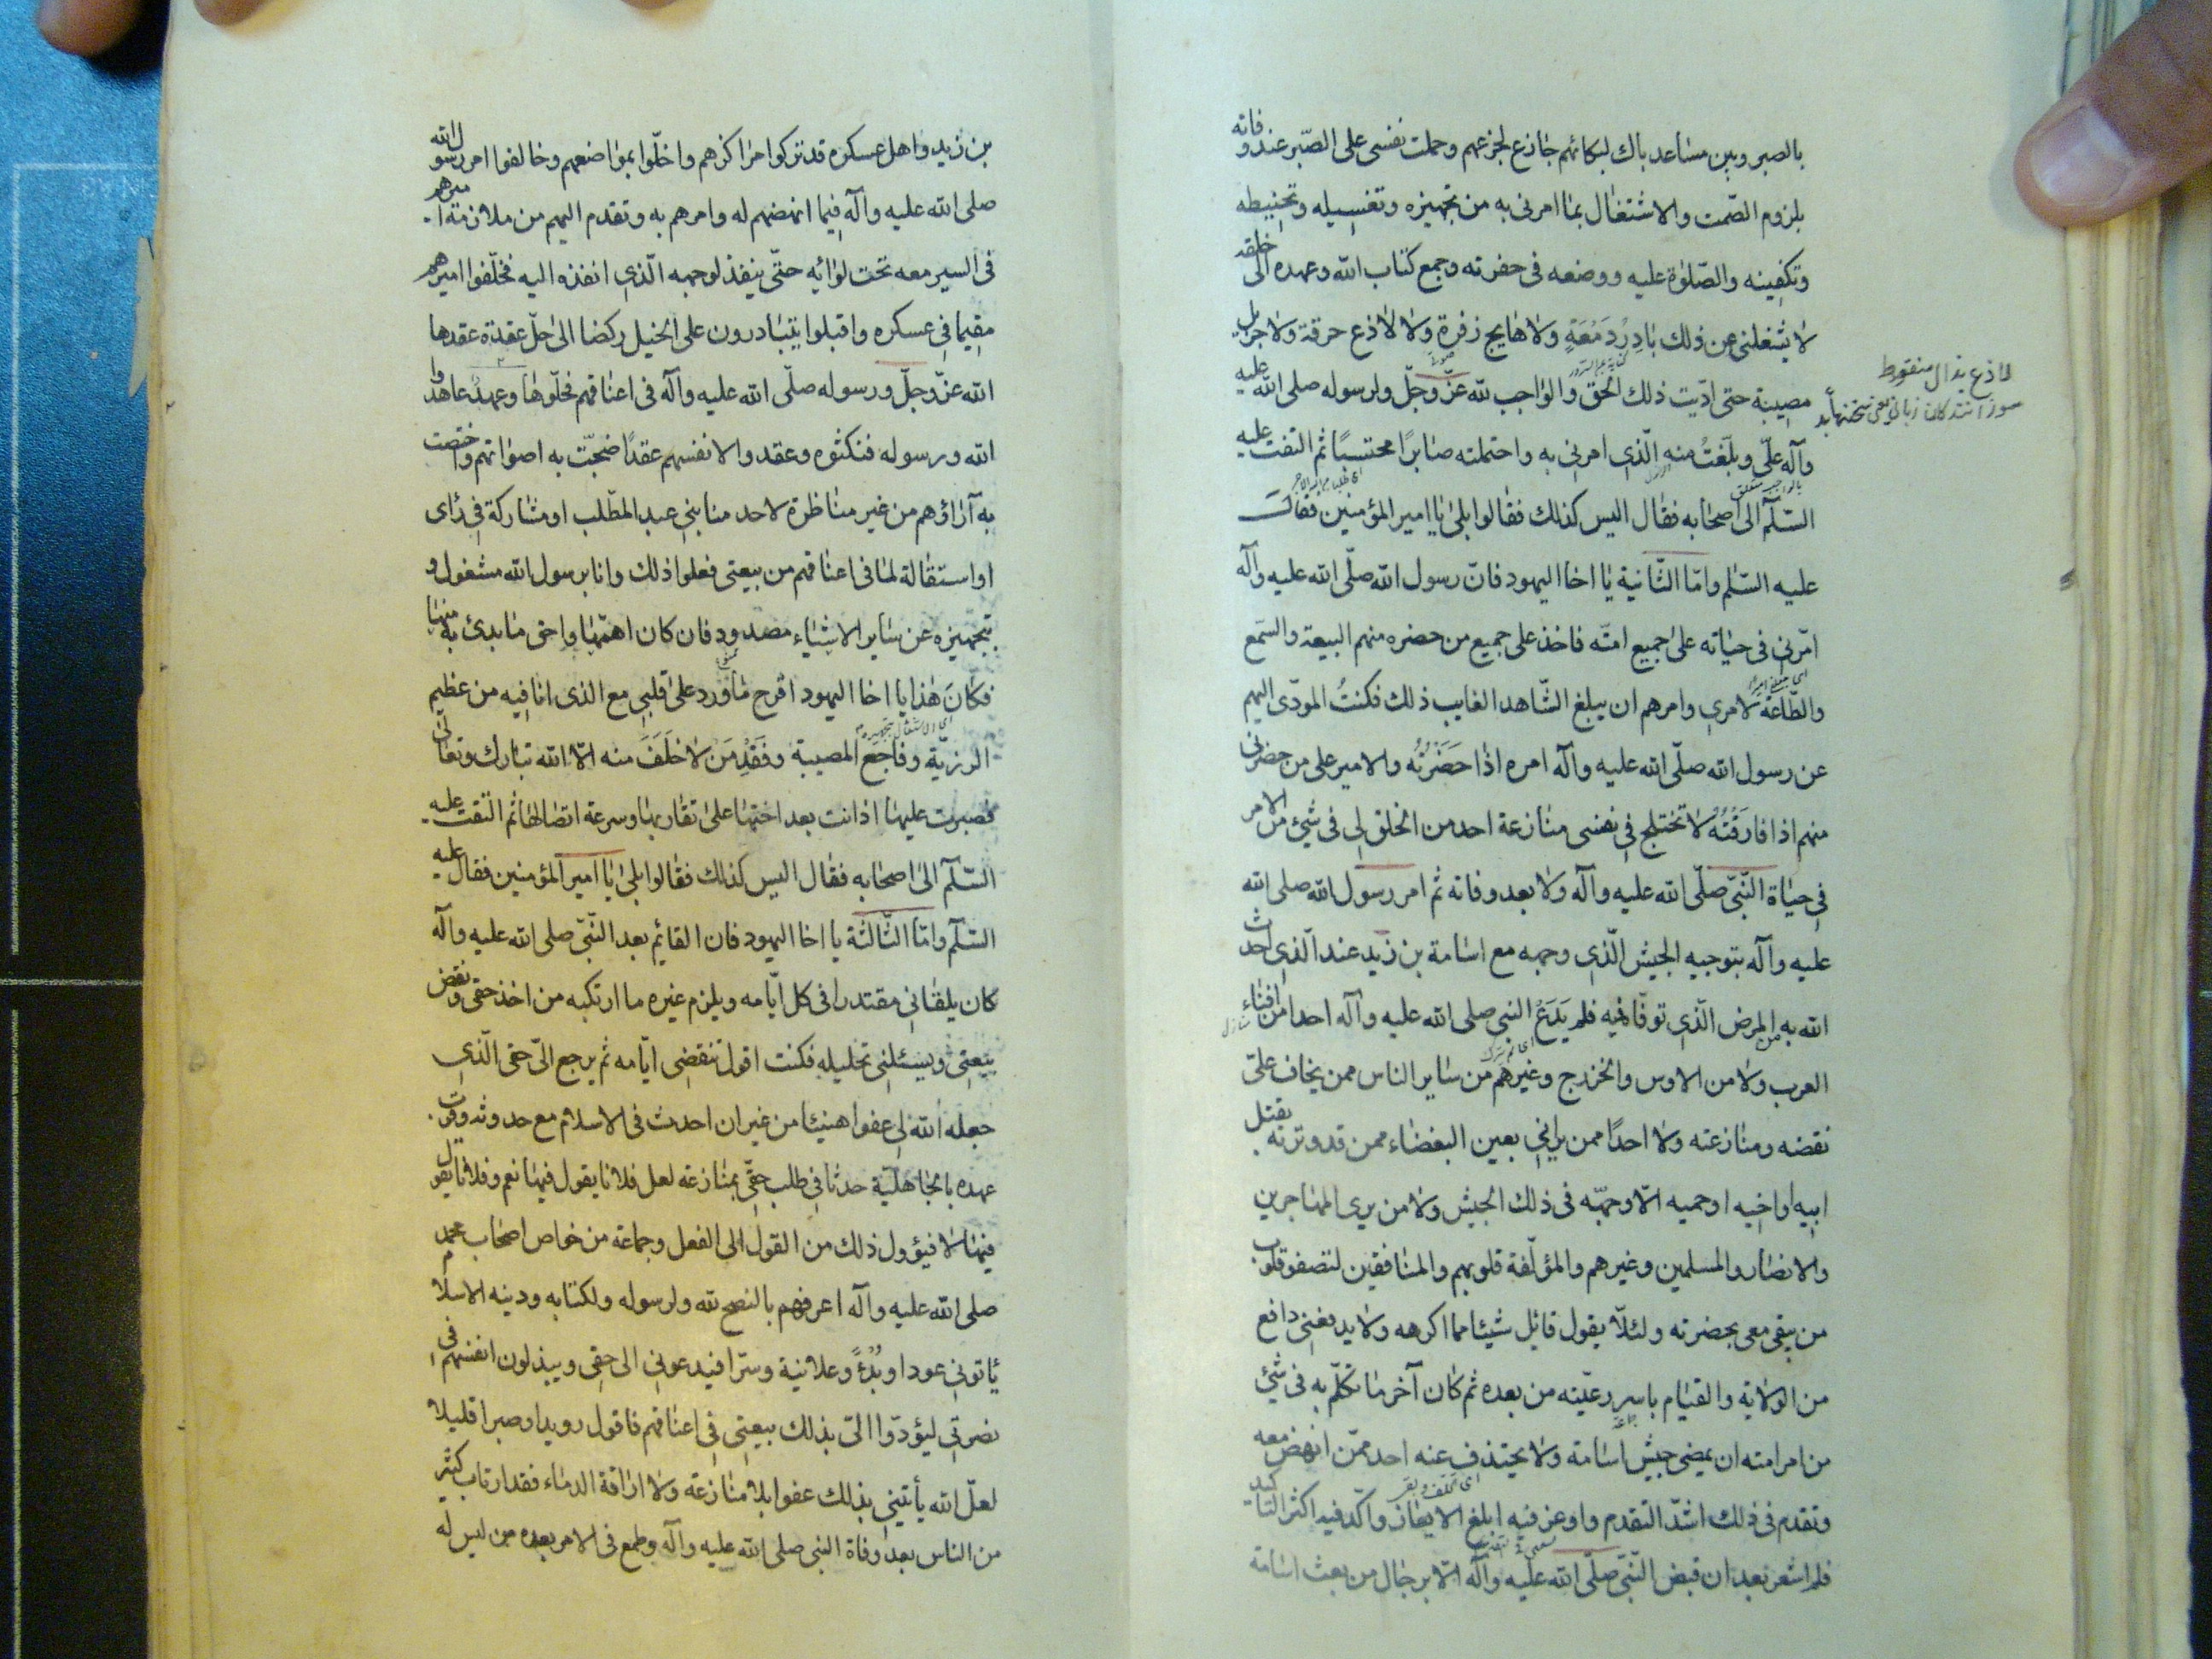 بالصبر وبين مساعد باك لبكائهم جازع لجزعهم وحملت نفسى على الصّبر عند وفاته
بلزوم الصّمت والاشتغال بما امرنى به من تجهيزه وتغسيله وتحنيطه
وتكفينه والصّلوة عليه ووضعه فى حفرته وجمع كتاب الله وعهده الى خلقه
لا يشغلنى عن ذلك بادِرُ دَمْعَةٍ ولا هايج زفرة ولا لاذع حرقة ولا جزيل
مصيبة حتى ادّيت ذلك الحق الواجب لله عزّ وجلّ ولرسوله صلى الله عليه
وآله علىّ وبلّغتُ منه الّذى امرنى به واحتملته صابرًا محتسبًا ثم التفت عليه
السّلم الى اصحابه فقال اليس كذلك فقالوا بلى يا امير المؤمنين فقال
عليه السّلم وامّا الثّانية يا اخا اليهود فانّ رسول الله صلّى الله عليه وآله
امّرنى فى حياته على جميع امته فاخذ على جميع من حضره منهم البيعة والسّمع
والطّاعة لامرى وامرهم ان يبلغ الشّاهد الغايب ذلك فكنتُ المودّى اليهم
عن رسول الله صلّى الله عليه وآله امره اذا حَضَرْتُه والامير على من حضرنى
منهم اذا فارَقْتُهُ لا تختلج فى نفسى منازعة احد من الخلق لى فى شئ من الامر
فى حياة النّبىّ صلّى الله عليه وآله ولا بعد وفاته ثم امر رسول الله صلى الله
عليه وآله بتوجيه الجيش الّذى وجهه مع اسامة بن زيد عند الّذى احدث
الله به من المرض الّذى توفّاه فيه فلم يَدَعُ النبى صلى الله عليه وآله احدا من افناء
العرب ولا من الاوس والخزرج وغيرهم من ساير الناس ممن يخاف علىّ
نقضه ومنازعته ولا احدًا ممن يرانى بعين البغضاء ممن قد وترته بقتل
ابيه او اخيه او حميه الّا وجهّه فى ذلك الجيش ولا من يرى المهاجرين
والانصار والمسلمين وغيرهم والمؤلّفة قلوبهم والمنافقين لتصفو قلوب
من يبقى معى بحضرته ولئلّا يقول قائل شيئا مما اكرهه ولا يدفعنى دافع
من الولاية والقيام بامر رعيّته من بعده ثم كان آخر ما تكلّم به فى شئ
من امر امته ان يمضى جيش اسامة ولا يتخلف عنه احد ممّن انهض معه
وتقدم فى ذلك اشدّ التقدم واوعز فيه ابلغ الايعاز واكّد فيه اكثر التاكيد
فلم اشعر بعد ان قبض النّبىّ صلّى الله عليه وآله الّا برجال من بعث اسامة
لاذع بذال منقوط
بن زيد واهل عسكره قد تركوا مراكزهم واخلّوا بمواضعهم وخالفوا امر رسول الله
صلى الله عليه وآله فيما انهضهم له وامرهم به وتقدم اليهم من ملازمة اميرهم
فى السير معه تحت لوائه حتّى ينفذ لوجهه الّذى انفذه اليه فخلّفوا اميرهم
مقيما فى عسكره واقبلوا يتبادرون على الخيل ركضا الى حلّ عقدة عقدها
الله عزّ وجلّ ورسوله صلّى الله عليه وآله فى اعناقهم فحلّوها وعهدٍ عاهدوا
الله ورسوله فنكثوه وعقدوا لانفسهم عقدًا ضجّت به اصواتهم واختصت
به آراؤهم من غير مناظرة لاحد منا بنى عبد المطّلب او مشاركة فى راى
او استقالة لما فى اعناقهم من بيعتى فعلوا ذلك وانا برسول الله مشغول و
بتجهيزه عن ساير الاشياء مصدود فان كان اهمّها واحق ما بدئ به منها
فكان هذا يا اخا اليهود اقرح ما ورد على قلبى مع الذى انا فيه من عظيم
الرزيّة وفاجع المصيبة وفَقْدِ مَن لا خَلَفَ منه الّا الله تبارك وتعالى
فصبرت عليها اذ اتت بعد اختها على تقاربها وسرعة اتصالها ثم التفت عليه
السّلم الى اصحابه فقال اليس كذلك فقالوا بلى يا امير المؤمنين فقال عليه
السّلم وامّا الثّالثة يا اخا اليهود فان القائم بعد النّبىّ صلى الله عليه وآله
كان يلقانى مقتدرا فى كل ايّامه ويلزم غيره ما ارتكبه من اخذ حقى ونقض
بيعتى ويسئلنى تحليله فكنت اقول تنقضى ايّامه ثم يرجع الىّ حقى الّذى
جعله الله لى عفوا هنيئا من غير ان احدث فى الاسلام مع حدوثه وقرب
عهده بالجاهليّة حدثا فى طلب حقّى بمنازعة لعل فلانا يقول فيها نعم وفلانا يقول
فيها لا فيؤول ذلك من القول الى الفعل وجماعة من خواص اصحاب محمد
صلى الله عليه وآله اعرفهم بالنصح لله ولرسوله ولكتابه ودينه الاسلام
ياتونى عودا وبُدْءً وعلانية وسرّا فيدعونى الى حقى ويبذلون انفسهم فى
نصرتى ليؤدّوا الىّ بذلك بيعتى فى اعناقهم فاقول رويدا وصبرا قليلا
لعلّ الله يأتينى بذلك عفوا بلا منازعة ولا اراقة الدماء فقد ارتاب كثير
من الناس بعد وفاة النبى صلى الله عليه وآله وطمع فى الامر بعده من ليس له